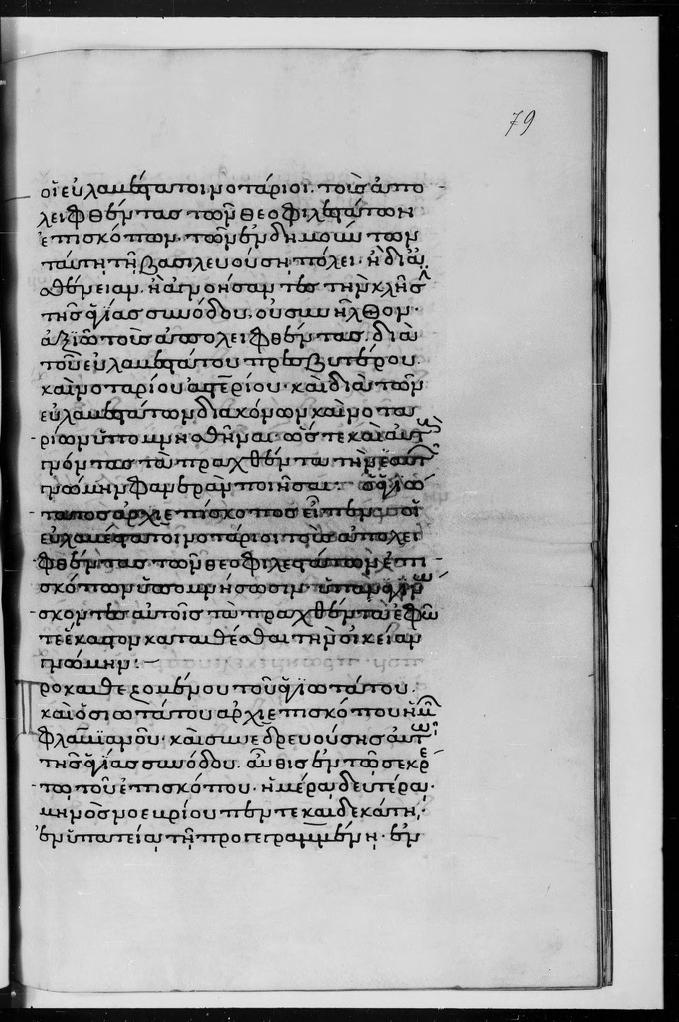 79
οἱ εὐλαβέστατοι νοτάριοι. τοὺς ἀπο
λειφθέντας τῶν θεοφιλεστάτων
ἐπισκόπων. τῶν ἐνδημούντων
ταύτῃ τῇ βασιλευούσῃ πόλει. ἢ δι' ἀ
σθένειαν. ἢ ἀγνοήσαντες τὴν κλῆσιν
τῆς ἁγίας συνόδου. οὐ συνῆλθον.
ἀξιῶ τοὺς ἀπολειφθέντας. διὰ
τοῦ εὐλαβεστάτου πρεσβυτέρου
καὶ νοταρίου ἀστερίου. καὶ διὰ τῶν
εὐλαβεστάτων διακόνων καὶ νοτα
ρίων ὑπομνησθῆναι. ὥστε καὶ αὐτοὺς
γνόντας τὰ πραχθέντα τὴν ἑαυτῶν
γνώμην φανερὰν ποιῆσαι: ὁ ἁγιώ
τατος ἀρχιεπίσκοπος εἶπεν. οἱ
εὐλαβέστατοι νοτάριοι τοὺς ἀπολει
φθέντας τῶν θεοφιλεστάτων ἐπι
σκόπων ὑπομνήσωσιν. ὑπαναγινώ
σκοντες αὐτοῖς τὰ πραχθέντα ἐφ' ᾧ
τε ἕκαστον καταθέσθαι τὴν οἰκείαν
γνώμην:
Προκαθεζομένου τοῦ ἁγιωτάτου.
καὶ ὁσιωτάτου ἀρχιεπισκόπου ἡμῶν
φλαυϊανοῦ. καὶ συνεδρευούσης αὐτῷ
τῆς ἁγίας συνόδου. αὖθις ἐν τῷ σεκρέ
τῳ τοῦ ἐπισκόπου. ἡμέρᾳ δευτέρᾳ.
μηνὸς νοεμρίου πεντεκαιδεκάτῃ,
ἐν ὑπατείᾳ τῇ προγεγραμμένῃ. ἐν